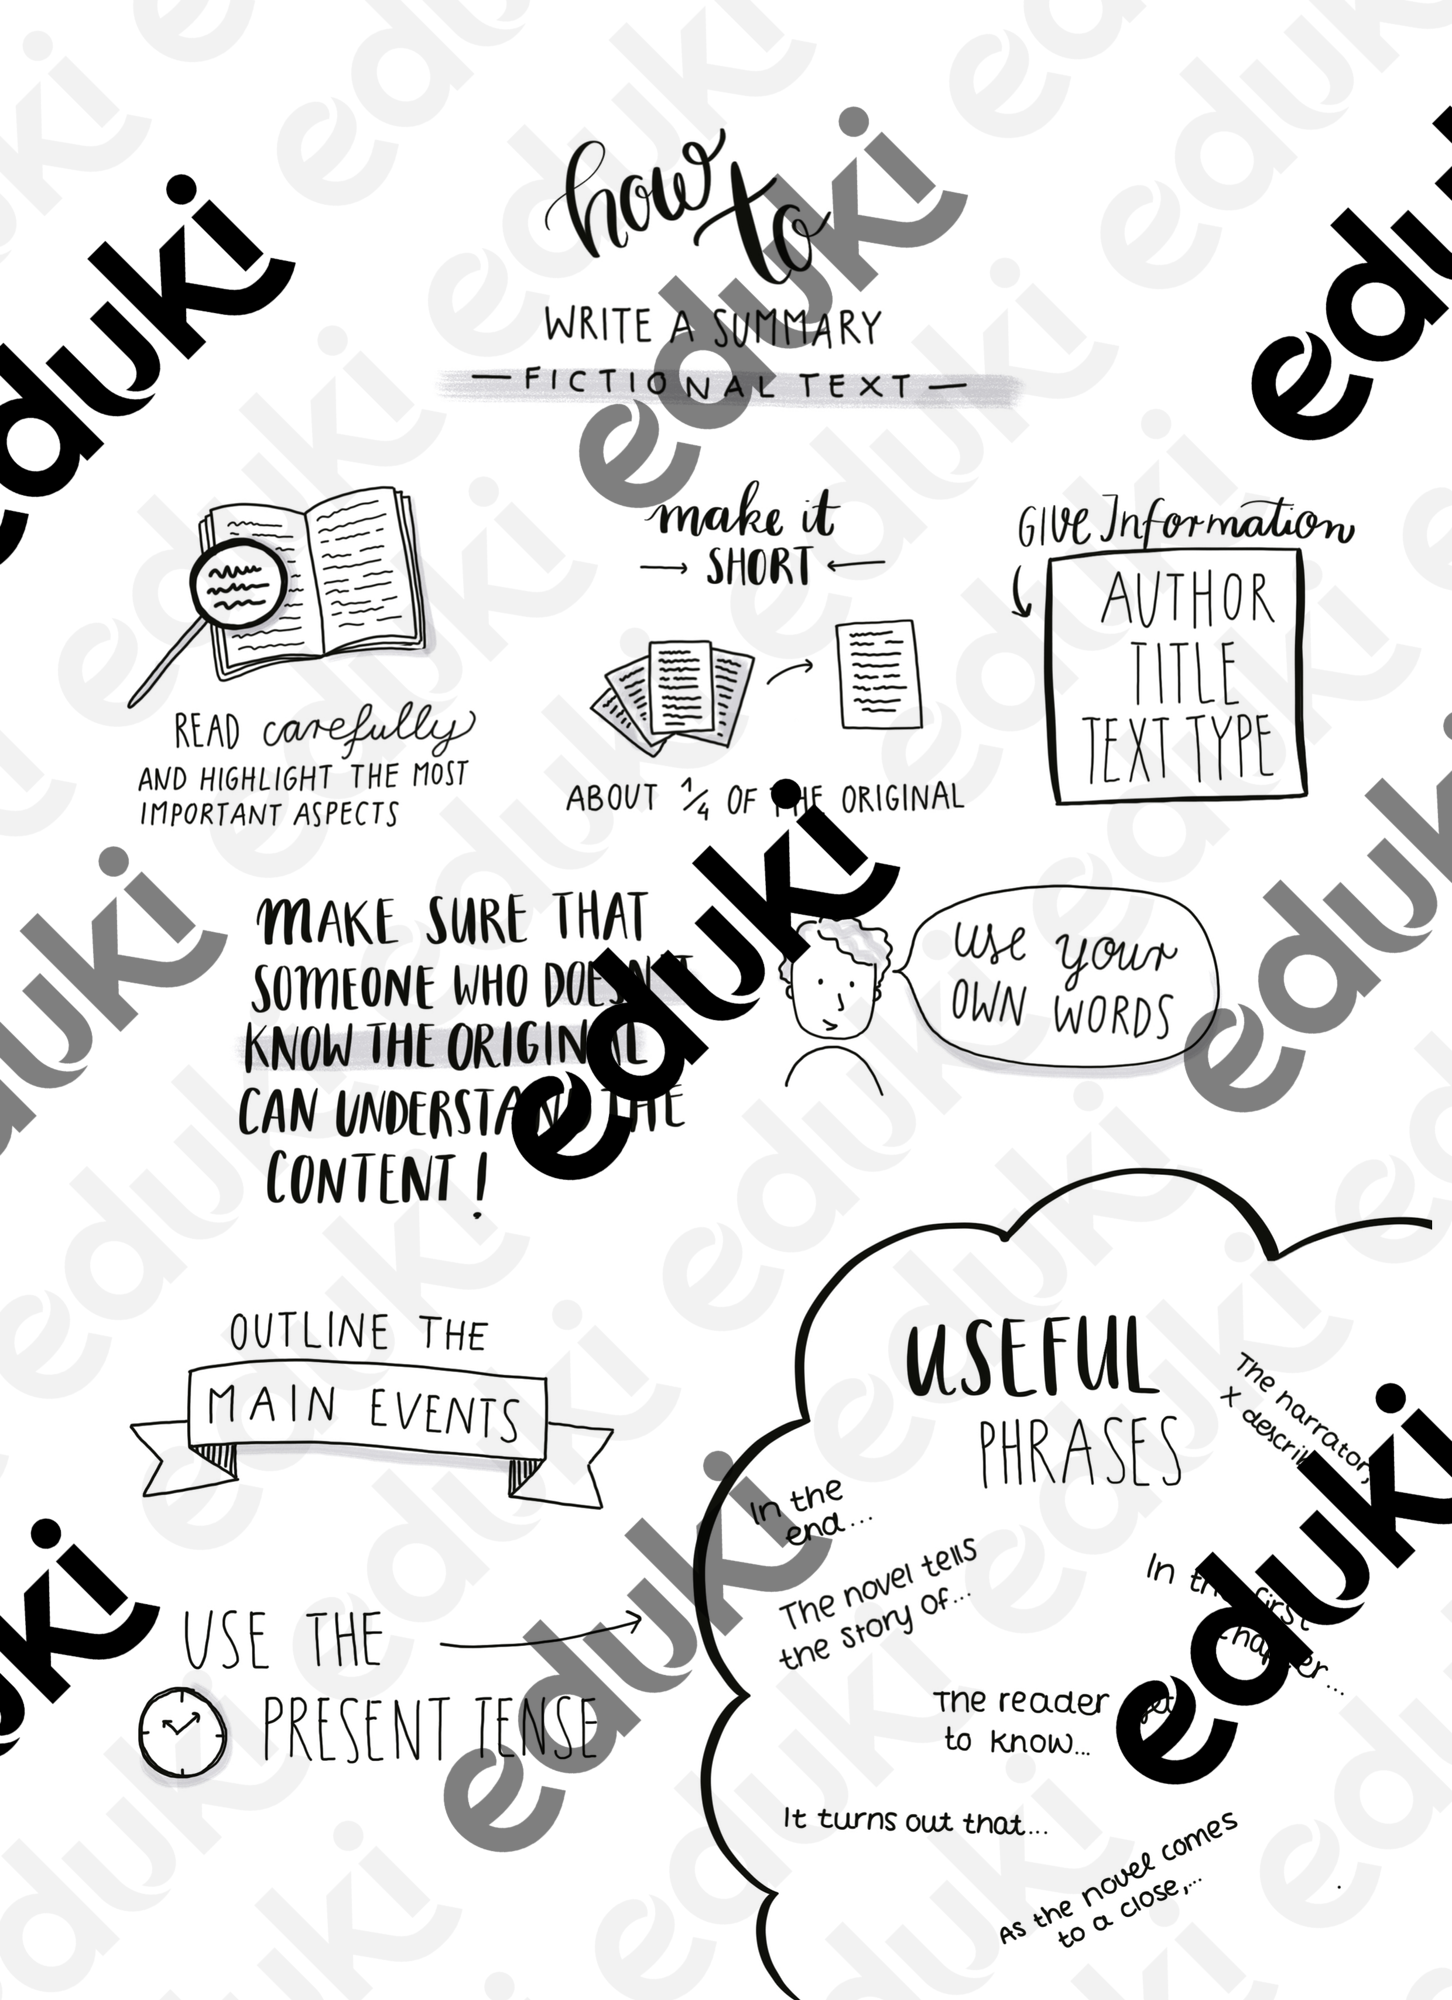 how to
WRITE A SUMMARY
— FICTIONAL TEXT —
READ carefully
AND HIGHLIGHT THE MOST
IMPORTANT ASPECTS
make it
SHORT
ABOUT 1/4 OF THE ORIGINAL
GIVE Information
AUTHOR
TITLE
TEXT TYPE
MAKE SURE THAT
SOMEONE WHO DOESN'T
KNOW THE ORIGINAL
CAN UNDERSTAND THE
CONTENT!
use your
OWN WORDS
OUTLINE THE
MAIN EVENTS
USE THE
PRESENT TENSE
USEFUL
PHRASES
The narrator,
x
In the
end...
The novel tells
the story of...
In the first
chapter...
The reader
to know...
It turns out that...
As the novel comes
to a close,...
eduki
eduki
eduki
eduki
eduki
eduki
eduki
eduki
eduki